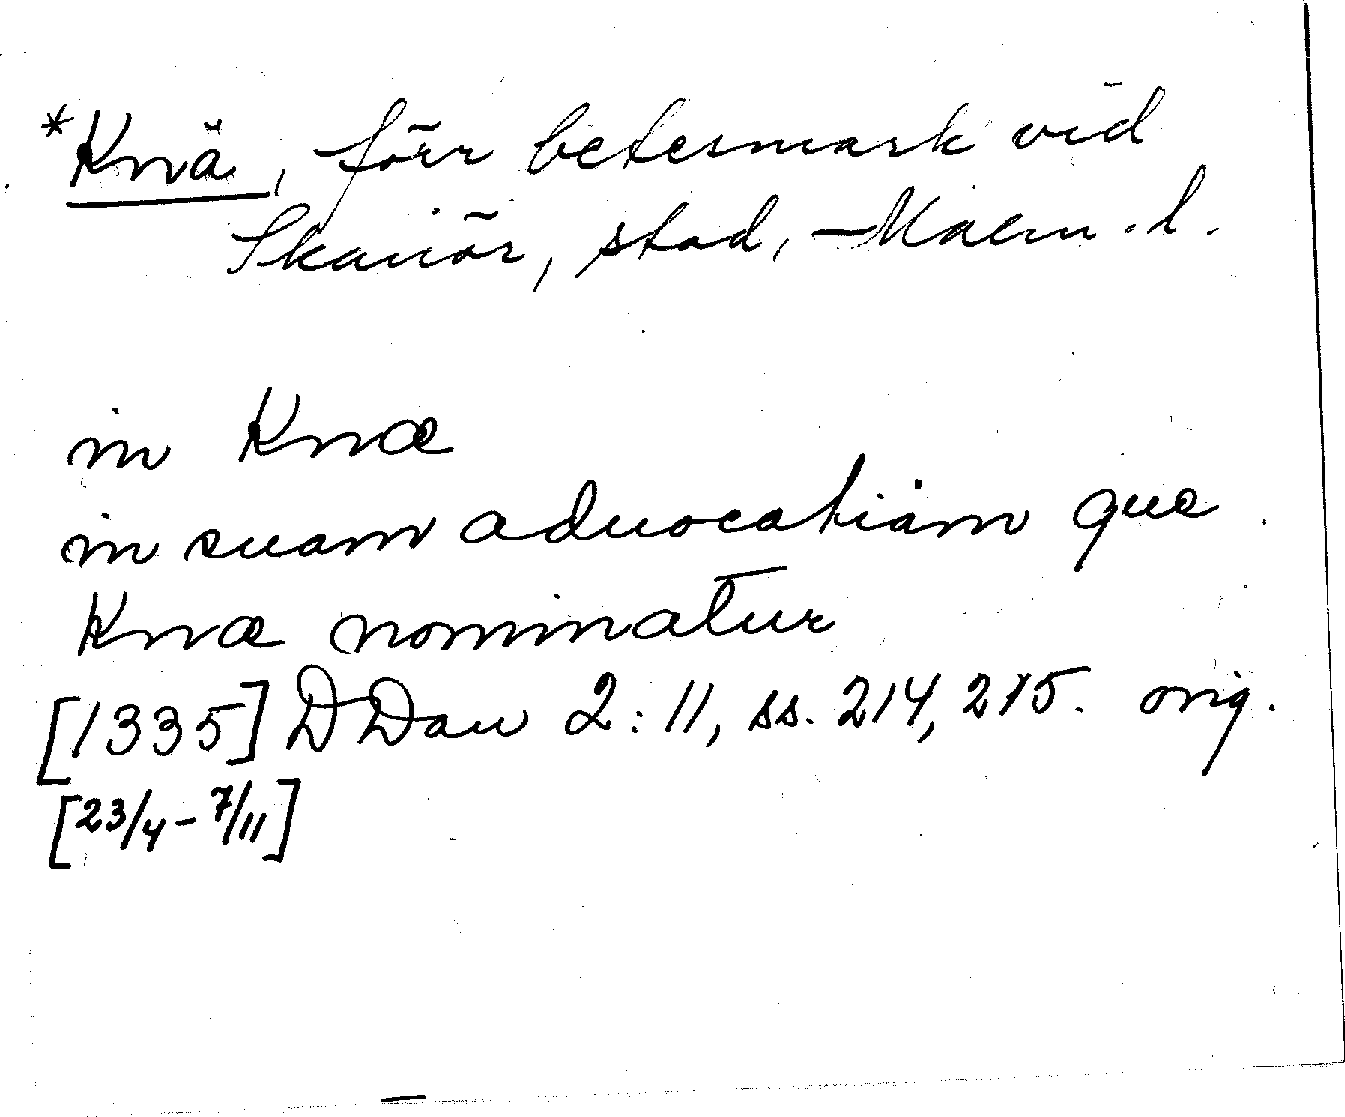 *Knä, förr betesmark vid
Skanör, stad, Malm. l.
in Knæ
in suam aduocatiam que
Knæ nominatur
[1335] DDan 2:11, ss. 214, 215. orig.
[23/4 - 7/11]